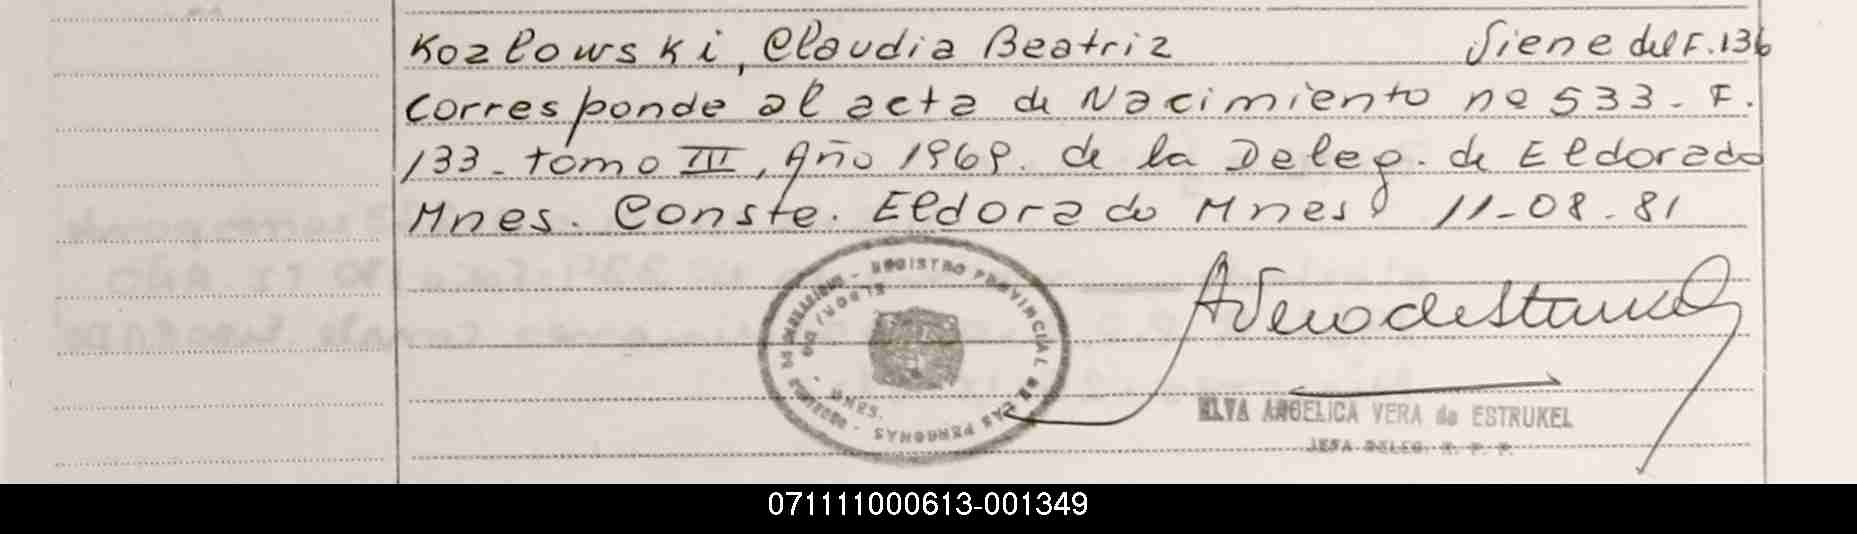 Kozlowski, Claudia Beatriz Viene del F. 136
Corresponde al acta de Nacimiento no 533 - F.
133 - tomo III, Año 1969. de la Deleg. de Eldorado
Mnes. Conste. Eldorado Mnes 11-08-81
REGISTRO PROVINCIAL DE LAS PERSONAS
ELDORADO - MNES.
ELVA ANGELICA VERA de ESTRUKEL
JEFA DELEG. R. P. P.
071111000613-001349